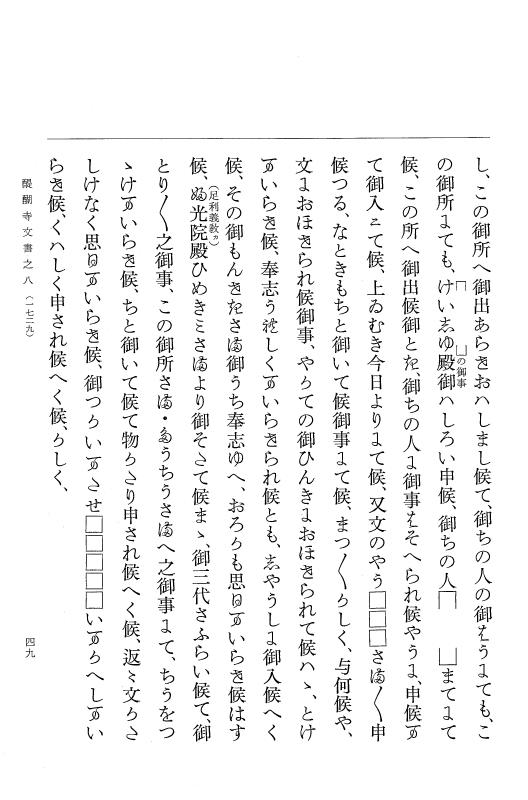 し、この御所へ御出あらきおハしまし候て、御ちの人の御もうよても、こ
の御所よても、けい志ゆ殿御ハしろい申候、御ちの人□　□まてよて
□の御事
候、この所へ御出候御とを、御ちの人よ御事もそへられ候やうよ、申候
て御入て候、上ゐむき今日よりよて候、又文のやう□□□さ〳〵申
候つる、なときもちと御いて候御事よて候、まつ〳〵らしく、与何候や、
文よおほきられ候御事、やらての御ひんきよおほきられて候ハヽ、とけ
いらき候、奉志うしくいらきられ候とも、志やうしよ御入候へく
候、その御もんきをさ御うち奉志ゆへ、おろらも思いらき候はす
(足利義教カ)
候、光院殿ひめきミさより御そて候まゝ、御三代さふらい候て、御
とり〳〵之御事、この御所さ・うちうさへ之御事よて、ちうをつ
ゝけいらき候、ちと御いて候て物らり申され候へく候、返ゝ文らさ
しけなく思いらき候、御つらいせ□□□□□いらへしい
らき候、くハしく申され候へく候、らしく、
醍醐寺文書之八(一七二九)
四九